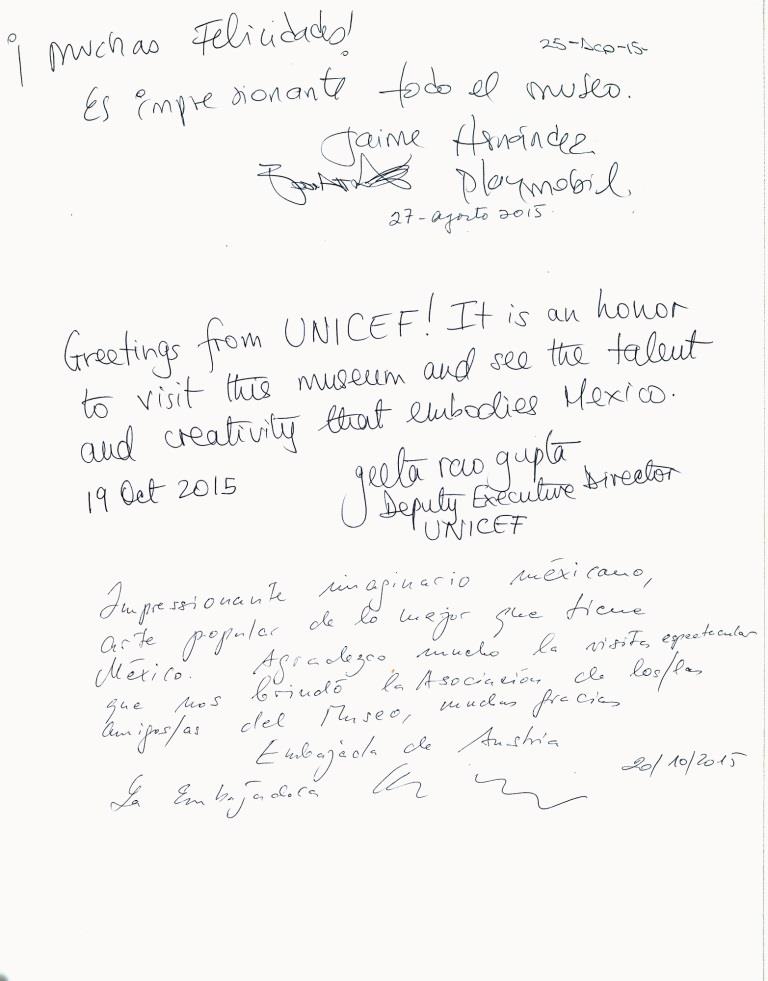 ¡Muchas Felicidades!
25-Ago-15
Es impresionante todo el museo.
Jaime Hernández
Playmobil.
27-agosto 2015
Greetings from UNICEF! It is an honor
to visit this museum and see the talent
and creativity that embodies Mexico.
19 Oct 2015
geeta rao gupta
Deputy Executive Director
UNICEF
Impressionante imaginario méxicano,
arte popular de lo mejor que tiene
México. Agradezco mucho la visita espectacular
que nos brindó la Asociación de los/las
amigos/as del Museo, muchas gracias
Embajada de Austria
20/10/2015
La Embajadora